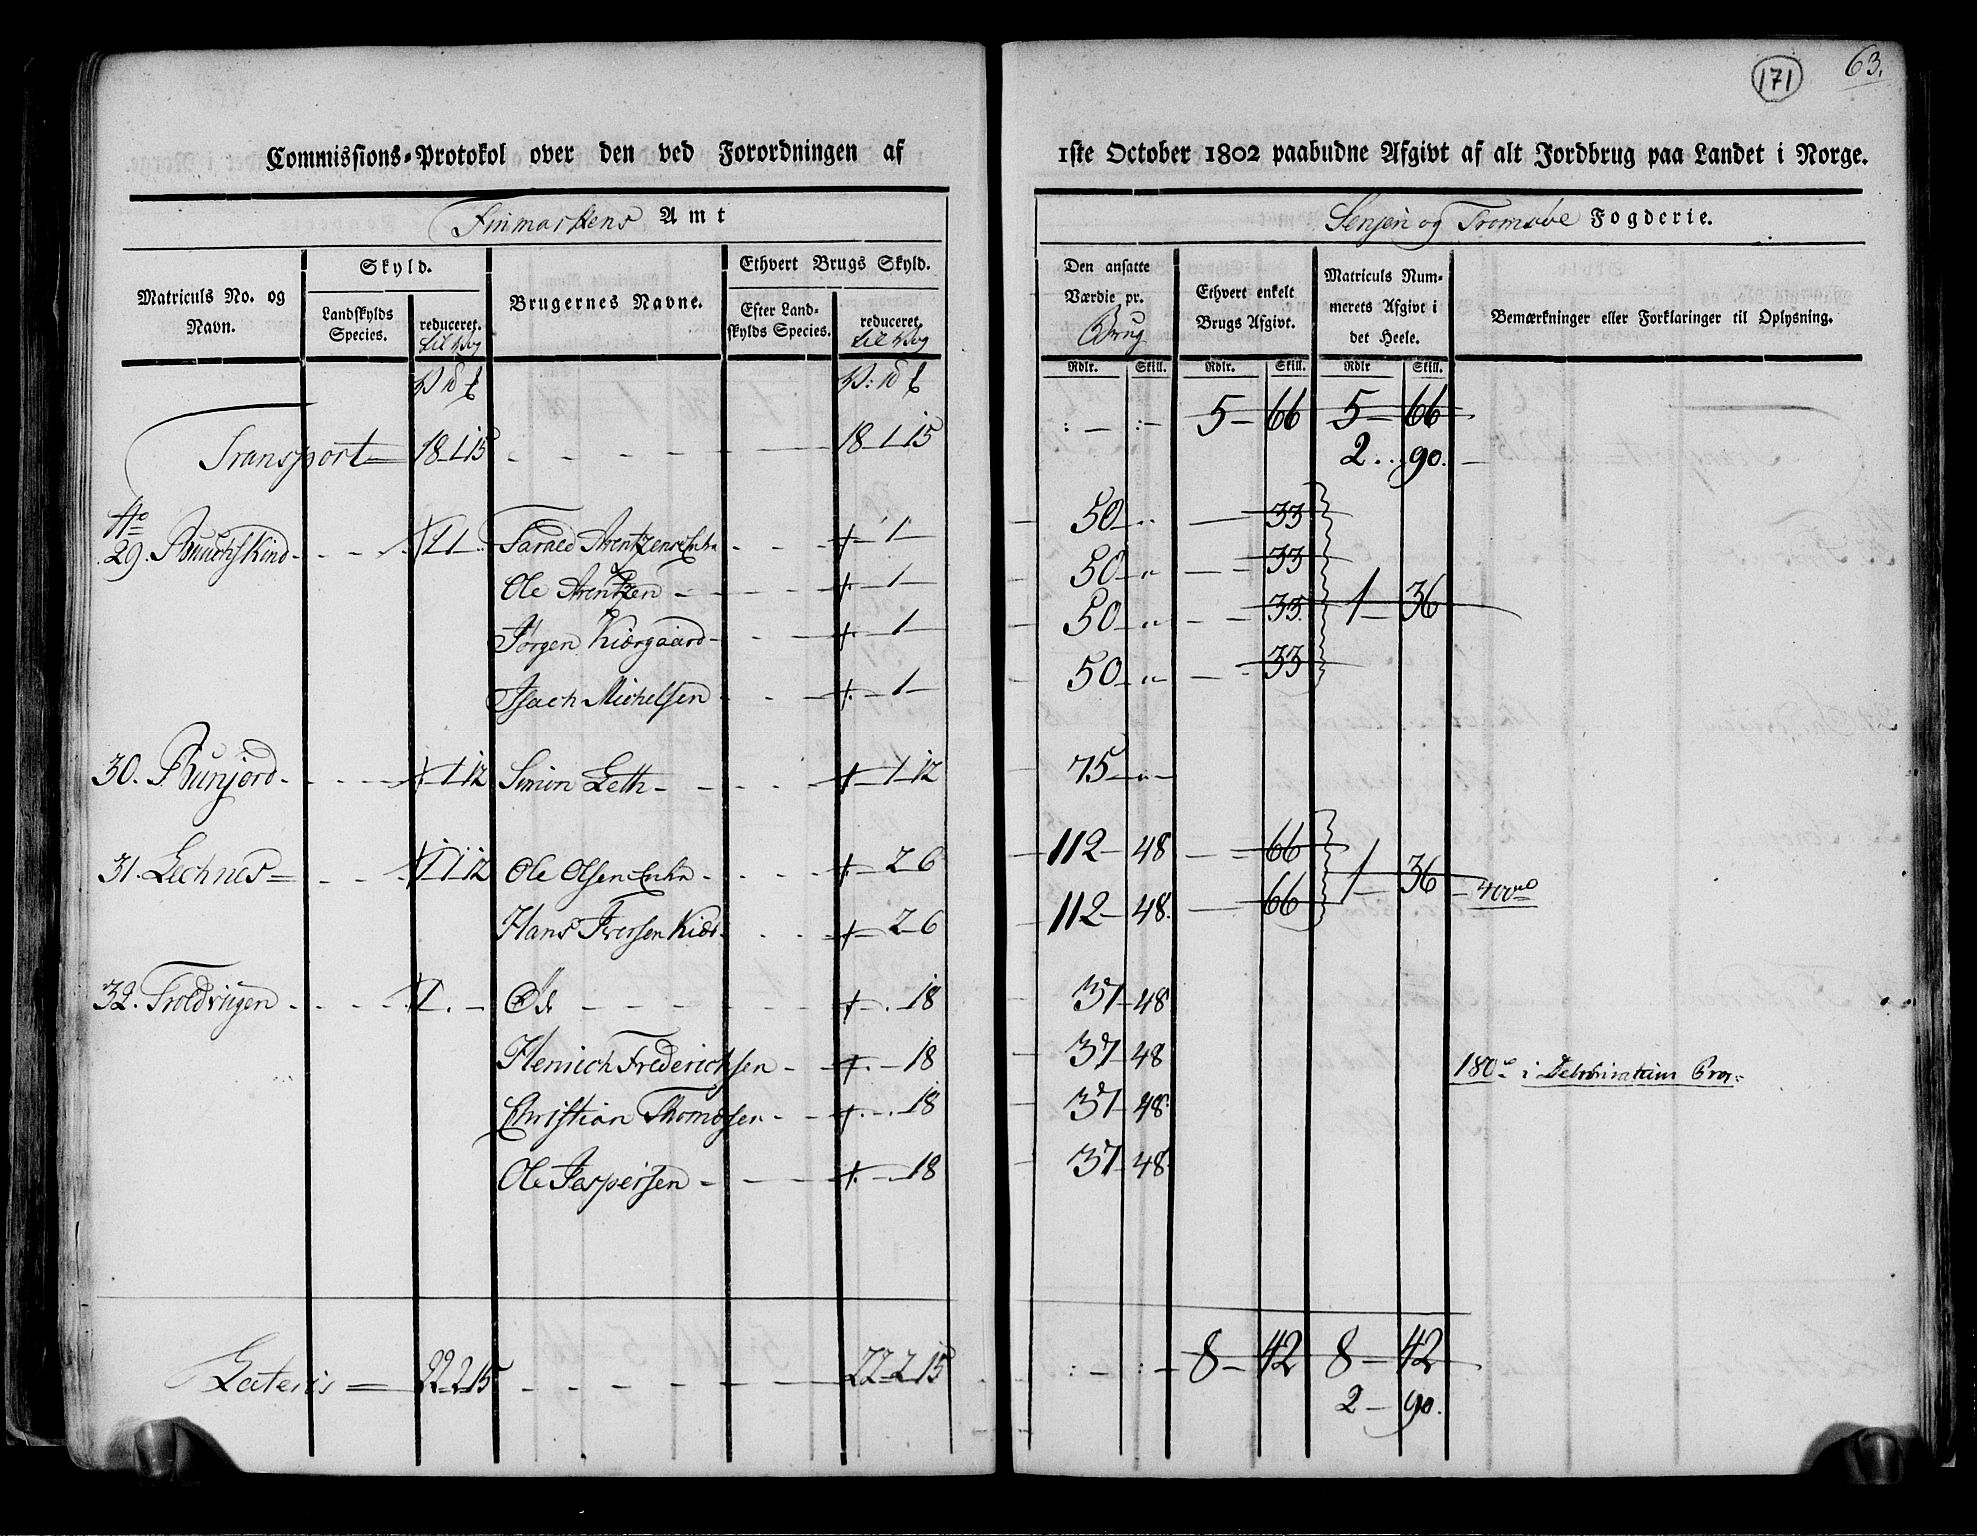 171 63.
Commissions-Protokol over den ved Forordningen af 1ste October 1802 paabudne Afgivt af alt Jordbrug paa Landet i Norge.
Finmarkens Amt
Senjen og Tromsöe Fogderie.
Matriculs No. og Navn.
Skyld.
Landskylds Species.
reduceret til Vog
Brugernes Navne.
Ethvert Brugs Skyld.
Efter Landskylds Species.
reduceret til Vog
Den ansatte Værdie pr. Brug
Ethvert enkelt Brugs Afgivt.
Matriculs Nummerets Afgivt i det Heele.
Bemærkninger eller Forklaringer til Oplysning.
Rdlr. Skill. Rdlr. Skill. Rdlr Skill.
Transport 18 1 15 - - - 18 1 15 : - : - 5 - 66 5 - 66
2 . . 90.
No
29. 1 1 Arentzens Enke - - 1 - 50 - " - 33
Ole Arentzen - - 1 - 50 - " - 33
Jørgen Kiærgaard - - 1 - 50 - " - 33 1 - 36
Isach Michelsen - - 1 - 50 - " - 33
30. 1 12 Simon Leth - - - 1 12 75 - " -
31. Lechnes - - 1 1 12 Ole Olsens Enke - - 2 6 112 - 48 - 66
1 - 36 - 400
Hans Iversen Kiær - - 2 6 112 - 48. - 66
32. Troldvigen - - 1 . - Öde - - - . 18 37 - 48
Henrich Frederichsen - - . - 18 37 - 48 180 i
Christian Thomesen - - . - . 18 37 - 48
Ole Jespersen - - - . - 18 37 - 48
Lateris 22 2 15 - - - 22 2 15 : - : - 8 - 42 8 - 42
2 - 90.